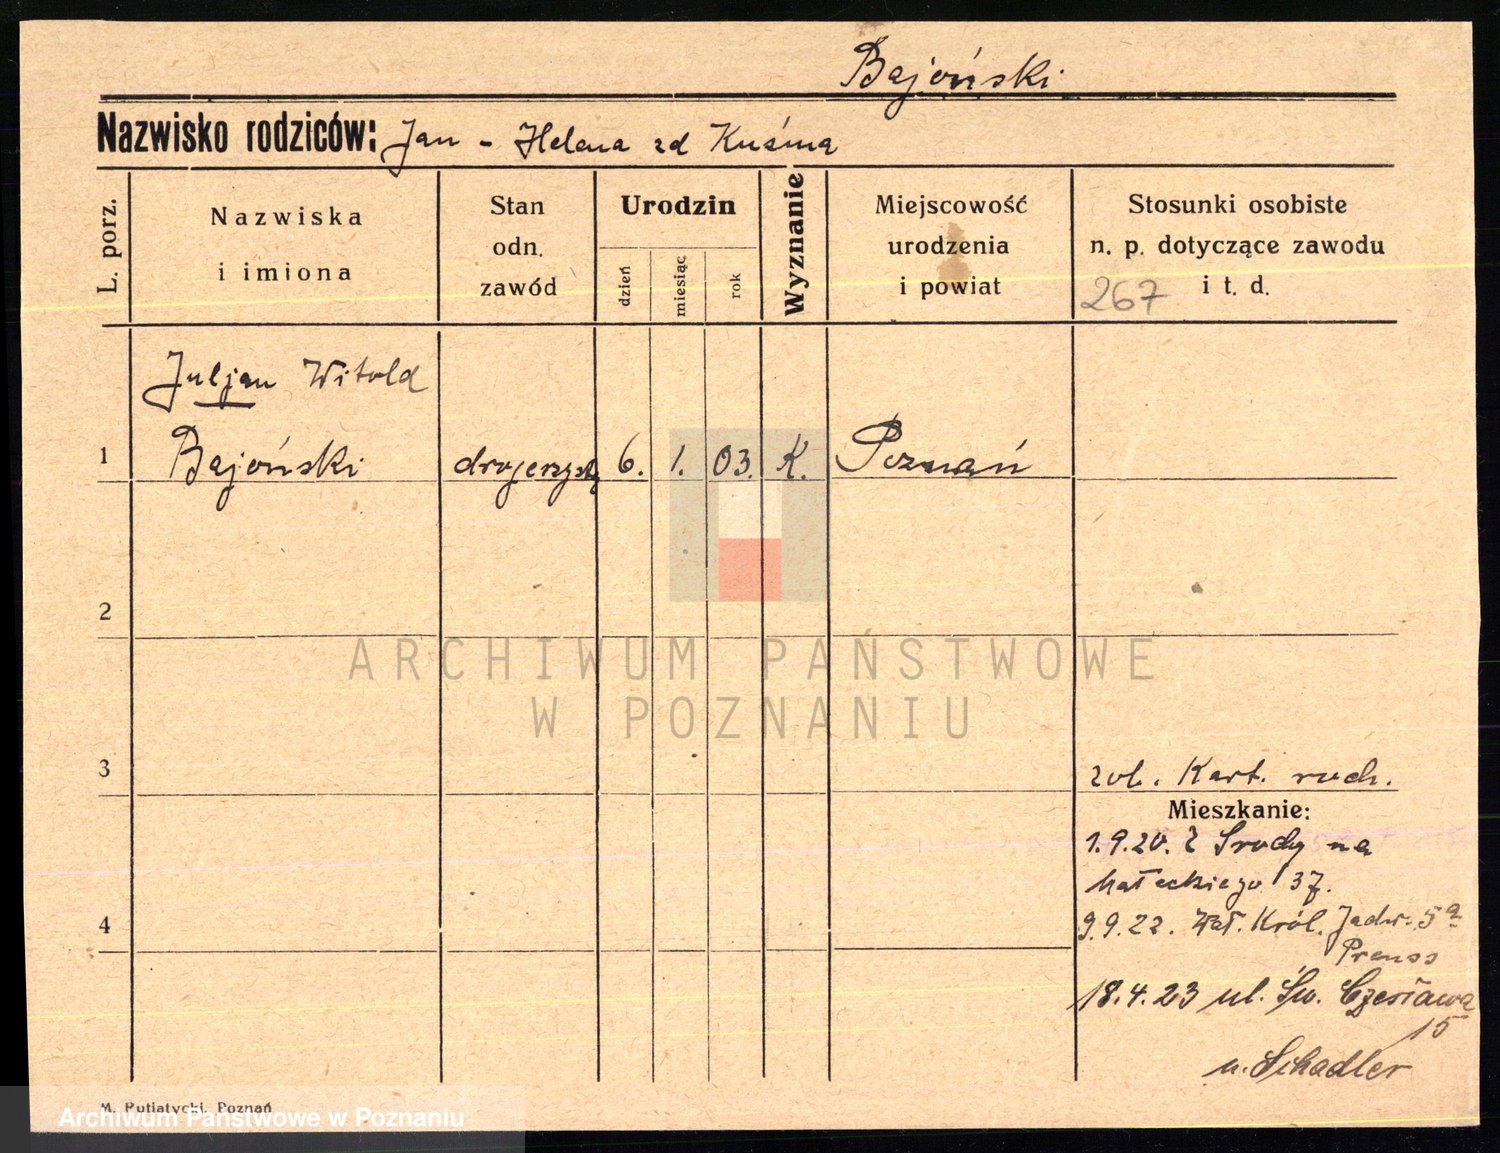 Bajoński
Nazwisko rodziców: Jan - Helena zd Kuśma
L. porz.
Nazwiska
i imiona
Stan
odn.
zawód
Urodzin
dzień
miesiąc
rok
Wyznanie
Miejscowość
urodzenia
i powiat
Stosunki osobiste
n. p. dotyczące zawodu
i t. d.
267
Juljan Witold
1 Bajoński drogerzysta 6. 1. 03. K. Poznań
2
ARCHIWUM PAŃSTWOWE
W POZNANIU
3
zob. Kart. ruch.
Mieszkanie:
1.9.20. z Środy na
Małeckiego 37.
4
9.9.22. Wał. Król. Jadw. 5a
Preuss
18.4.23 ul. Św. Czesława
15
u. Schadler
M. Putiatycki, Poznań
Archiwum Państwowe w Poznaniu